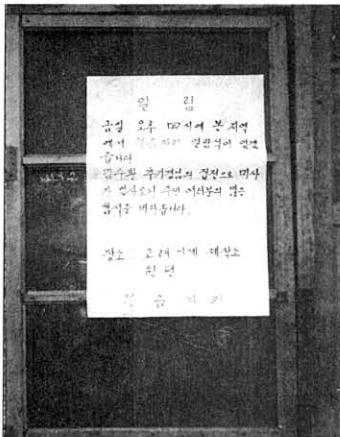 알 림
금일 오후 시에 본 지역
에서 복음자리 결단식이 있겠
습니다
김수환 추기경님의 집전으로 미사
가 있사오니 주민 여러분의 많은
참석을 바랍니다.
장소 : 고려 시계 제작소
뒷편
복 음 자 리